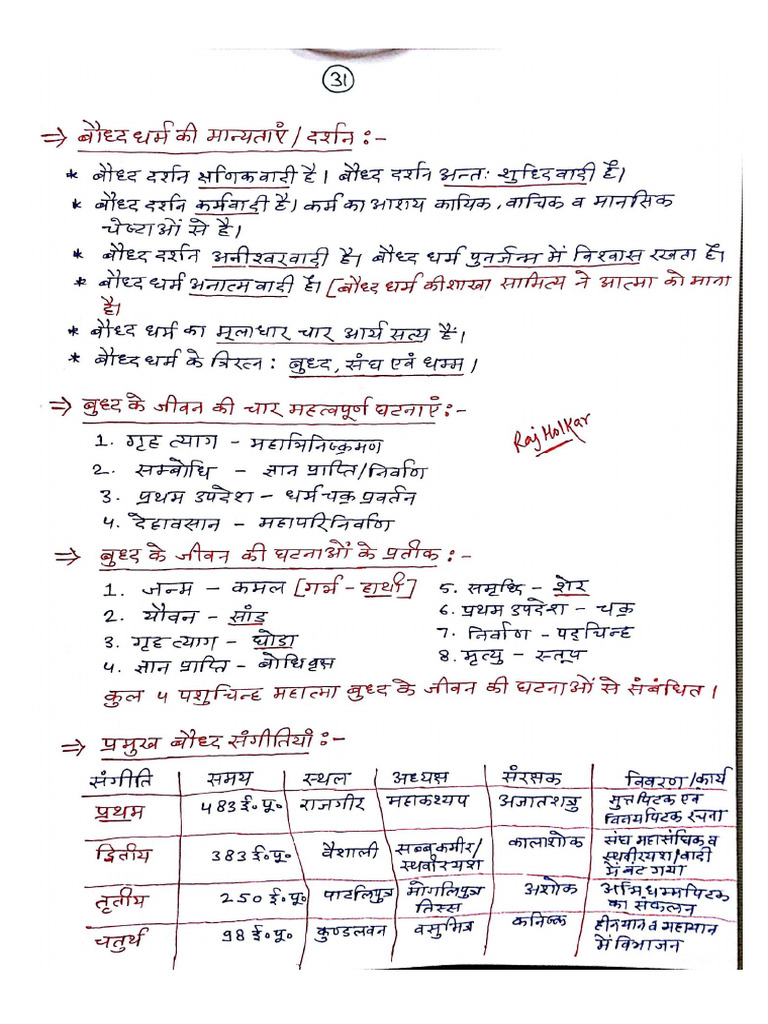 31
⇒ बौध्द धर्म की मान्यताएं / दर्शन :-
* बौध्द दर्शन क्षणिकवादी है। बौध्द दर्शन अन्तः शुध्दिवादी है।
* बौध्द दर्शन कर्मवादी है। कर्म का आशय कायिक, वाचिक व मानसिक
चेष्टाओं से है।
* बौध्द दर्शन अनीश्वरवादी है। बौध्द धर्म पुनर्जन्म में विश्वास रखता है।
* बौध्द धर्म अनात्मवादी है। [बौध्द धर्म की शाखा सामित्य ने आत्मा को माना
है।
* बौध्द धर्म का मूलाधार चार आर्य सत्य है।
* बौध्द धर्म के त्रिरत्न : बुध्द, संघ एवं धम्म।
⇒ बुध्द के जीवन की चार महत्वपूर्ण घटनाएं :-
1. गृह त्याग - महाभिनिष्क्रमण
Raj Holkar
2. सम्बोधि - ज्ञान प्राप्ति/निर्वाण
3. प्रथम उपदेश - धर्म चक्र प्रवर्तन
4. देहावसान - महापरिनिर्वाण
⇒ बुध्द के जीवन की घटनाओं के प्रतीक :-
1. जन्म - कमल [गर्भ - हाथी]
2. यौवन - सांड
3. गृह त्याग - घोडा
4. ज्ञान प्राप्ति - बोधिवृक्ष
5. समृध्दि - शेर
6. प्रथम उपदेश - चक्र
7. निर्वाण - पदचिन्ह
8. मृत्यु - स्तूप
कुल 4 पशुचिन्ह महात्मा बुध्द के जीवन की घटनाओं से संबंधित।
⇒ प्रमुख बौध्द संगीतियाँ :-
संगीति समय स्थल अध्यक्ष संरक्षक विवरण/कार्य
प्रथम 483 ई.पू. राजगीर महाकश्यप अजातशत्रु सुत्तपिटक एवं
विनयपिटक रचना
द्वितीय 383 ई.पू. वैशाली सब्बकमीर/ कालाशोक संघ महासंधिक व
स्थवीरयश स्थवीरयश/वादी
में बंट गया
तृतीय 250 ई.पू. पाटलिपुत्र मोगलिपुत्र अशोक अभिधम्मपिटक
तिस्स का संकलन
चतुर्थ 98 ई.पू. कुण्डलवन वसुमित्र कनिष्क हीनयान व महायान
में विभाजन